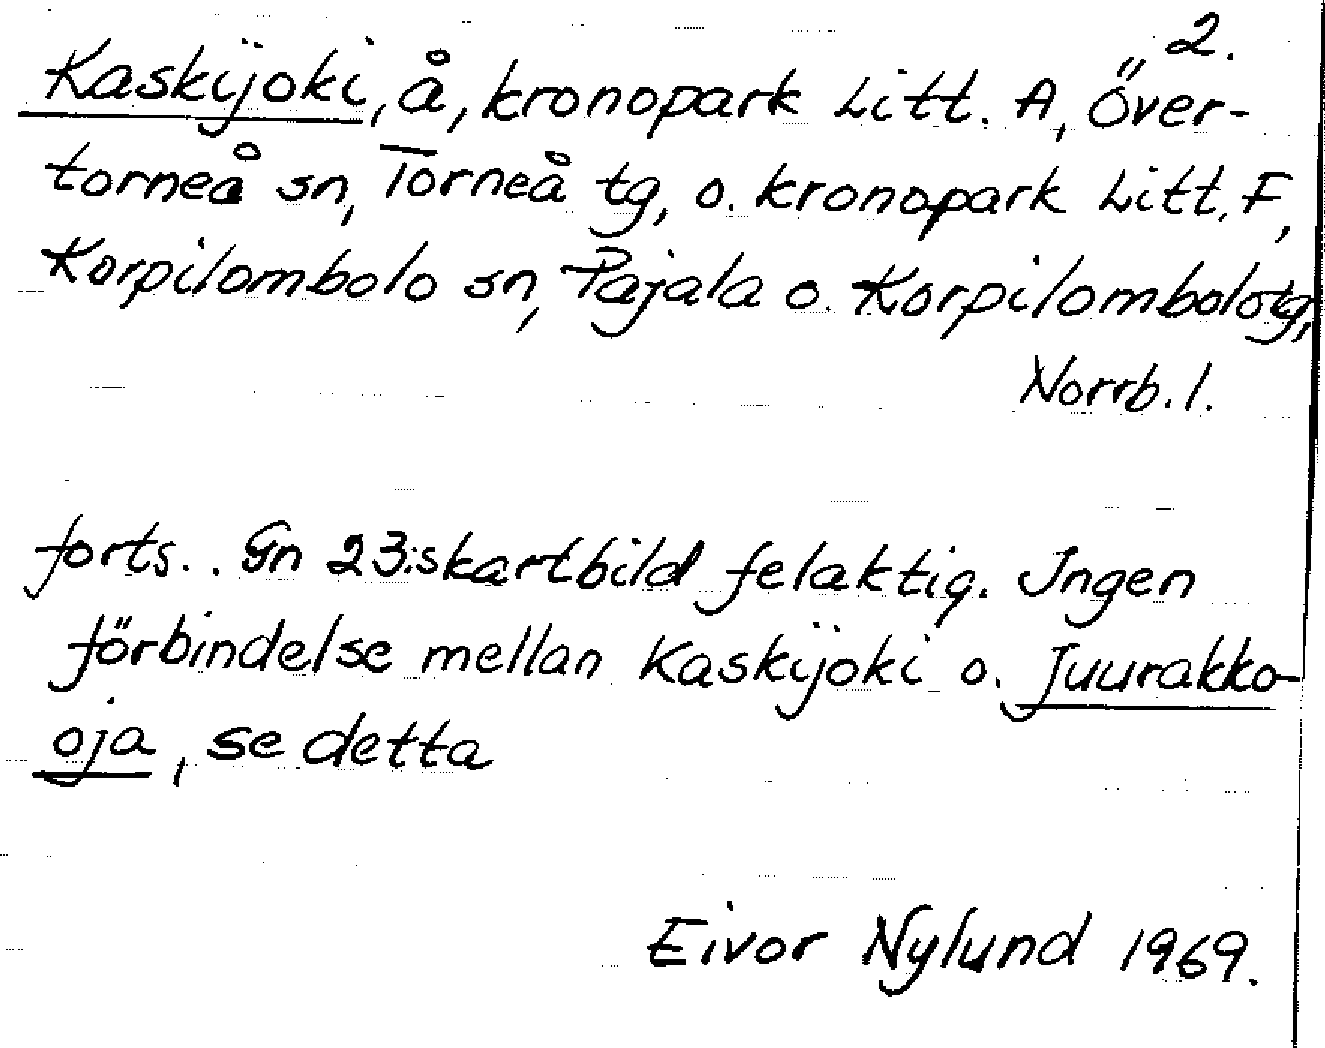 2.
Kaskijoki, å, kronopark Litt. A, Över-
torneå sn, Torneå tg, o. kronopark Litt. F,
Korpilombolo sn, Pajala o. Korpilombolo tg,
Norrb. l.
forts.. Gn 23:s kartbild felaktig. Ingen
förbindelse mellan Kaskijoki o. Juurakko-
oja, se detta
Eivor Nylund 1969.